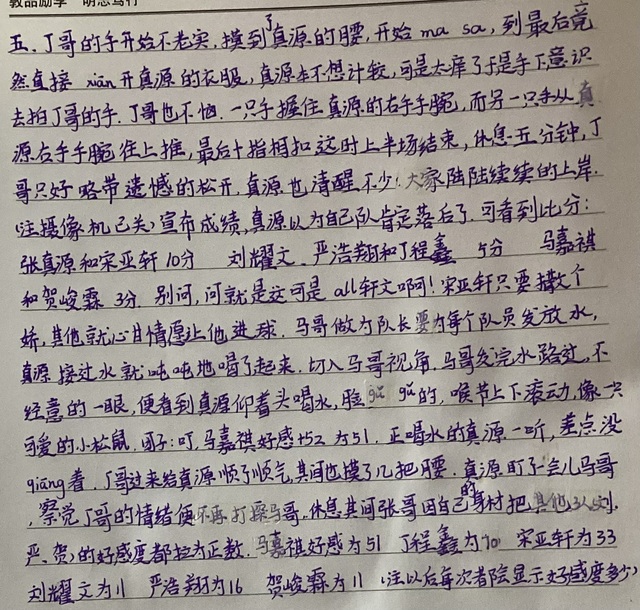 教品励学 明志笃行
五、丁哥的手开始不老实,摸到了真源的腰,开始 ma sa,到最后竟
然直接 xiān 开真源的衣服,真源本不想计较,可是太痒了于是手下意识
去拍丁哥的手.丁哥也不恼.一只手握住真源的右手手腕,而另一只手从真
源右手手腕往上推,最后十指相扣这时上半场结束,休息五分钟,丁
哥只好略带遗憾的松开,真源也清醒不少!大家陆陆续续的上岸.
(注摄像机已关)宣布成绩,真源以为自己队肯定落后了.可看到比分:
张真源和宋亚轩10分 刘耀文、严浩翔和丁程鑫 5分 马嘉祺
和贺峻霖 3分. 别问,问就是这可是all轩文啊!宋亚轩只要撒个
娇,其他就心甘情愿让他进球.马哥做为队长要为每个队员发放水,
真源接过水就吨吨地喝了起来.切入马哥视角,马哥发完水路过,不
经意的一眼,便看到真源仰着头喝水,脸 gǔ gǔ的,喉节上下滚动,像一只
可爱的小松鼠.团子:叮,马嘉祺好感+52 为51.正喝水的真源一听,差点没
qiāng着.丁哥过来给真源顺了顺气,其间也摸了几把腰.真源盯了一会儿马哥
,察觉丁哥的情绪便不再打探马哥.休息其间张哥因自己的身材把其他3人(刘、
严、贺)的好感度都拉为正数.马嘉祺好感为51 丁程鑫为70 宋亚轩为33
刘耀文为11 严浩翔为16 贺峻霖为11 (注以后每次都会显示好感度多少)